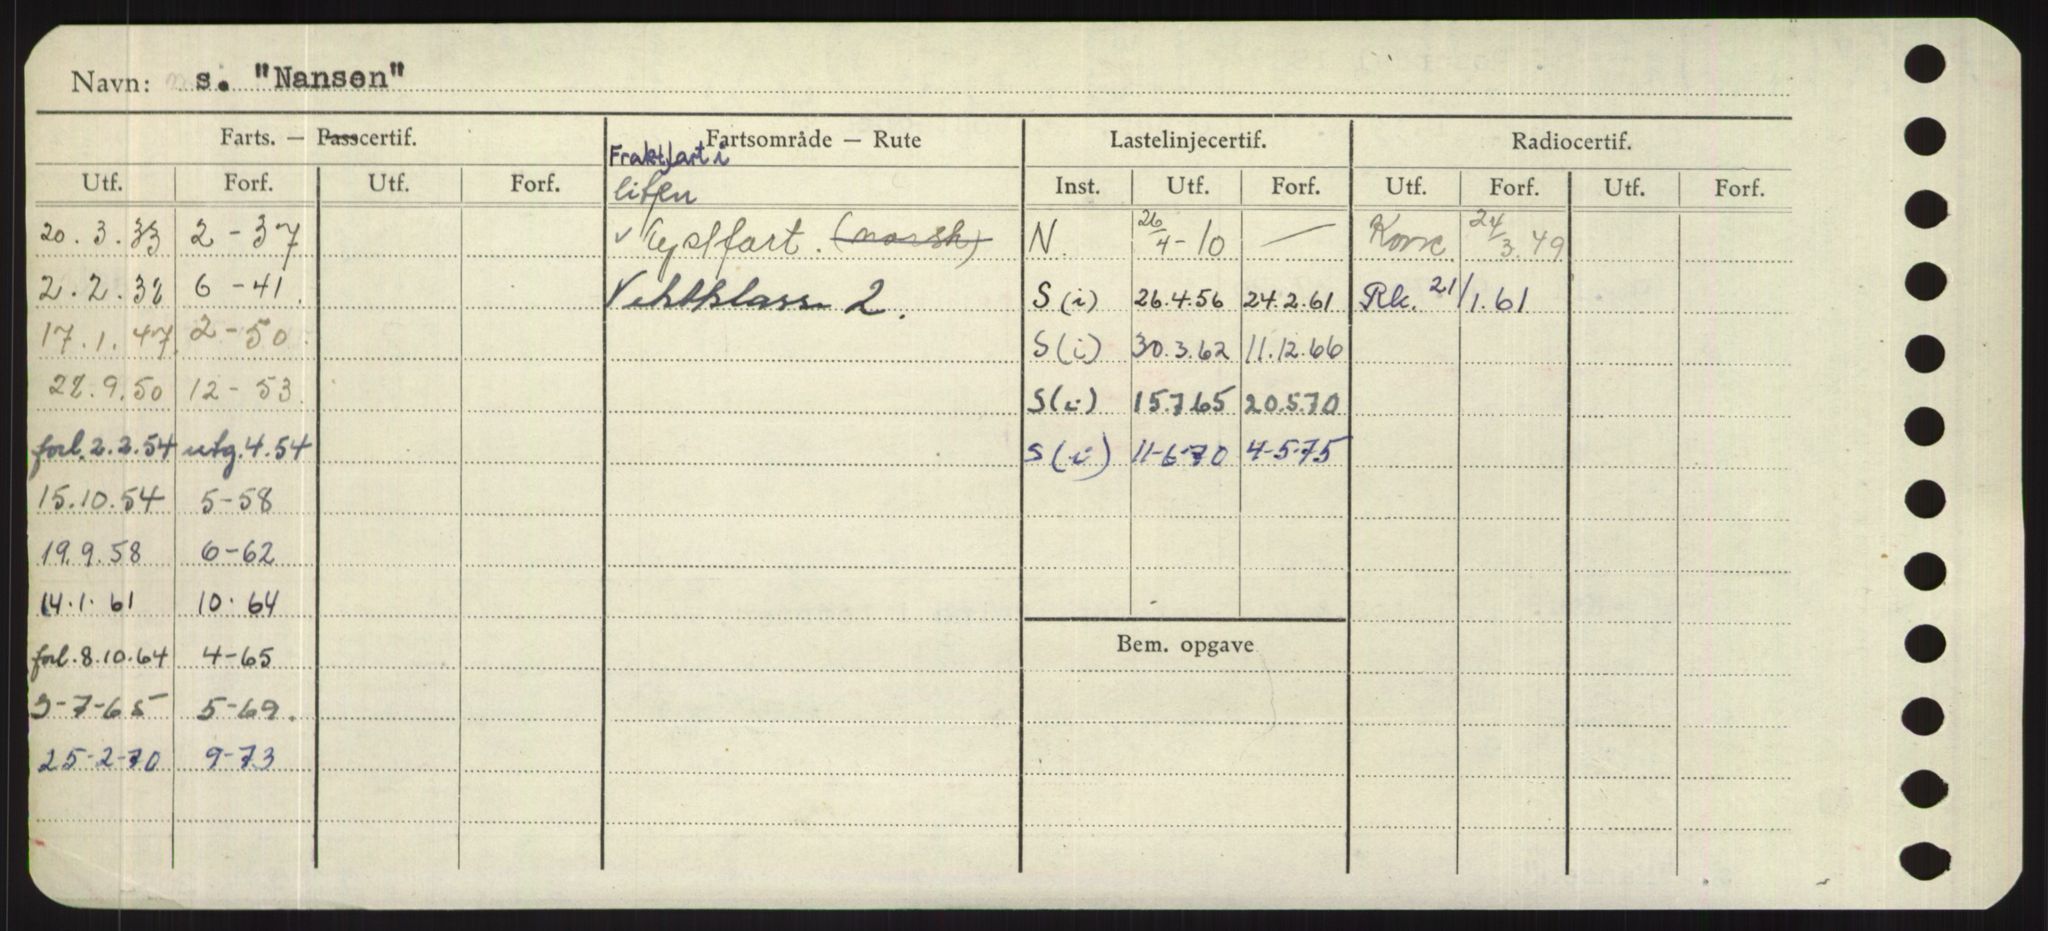 Navn: s. "Nansen"
Farts. — Passcertif. Fartsområde — Rute Lastelinjecertif. Radiocertif.
Fraktfart i
Utf. Forf. Utf. Forf. liten Inst. Utf. Forf. Utf. Forf. Utf. Forf.
20.3.33 2-37 kystfart. (norsk) N. 26/4-10 — Konv. 24/3.49
2.2.38 6-41. Vektklasse 2. S(i) 26.4.56 24.2.61 Rk. 21/1.61
17.1.47. 2-50. S(i) 30.3.62 11.12.66
28.9.50 12-53. S(i) 15.7.65 20.5.70
forl. 2.2.54 utg. 4.54 S(i) 11-6-70 4-5-75
15.10.54 5-58
19.9.58 6-62
14.1.61 10.64
Bem. opgave
forl. 8.10.64 4-65
3-7-65 5-69.
25-2-70 9-73